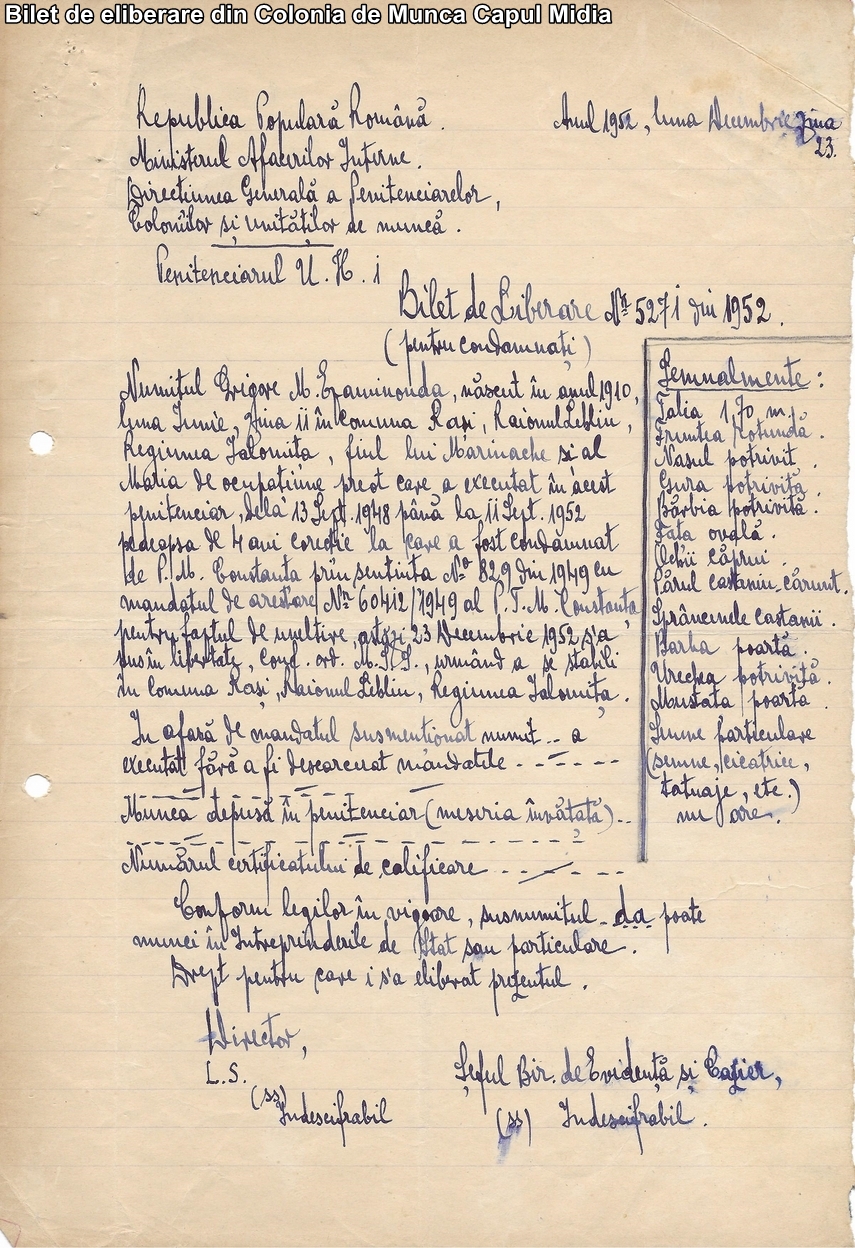 Bilet de eliberare din Colonia de Munca Capul Midia
Republica Populară Română.
Anul 1952, luna Decembrie ziua
23.
Ministerul Afacerilor Interne.
Direcțiunea Generală a Penitenciarelor,
Coloniilor și unităților de muncă.
Penitenciarul U. K. 1
Bilet de Liberare Nr 5271 din 1952.
(pentru condamnați)
Numitul Grigore M. Epaminonda, născut în anul 1910,
luna Iunie, ziua 11 în comuna Rași, Raionul Lehliu,
Regiunea Ialomița, fiul lui Marinache și al
Maria de ocupațiune preot care a executat în acest
penitenciar, dela 13 Sept. 1948 până la 11 Sept. 1952
pedeapsa de 4 ani corecție la care a fost condamnat
de P. M. Constanța prin sentința No 829 din 1949 cu
mandatul de arestare Nr 60412/1949 al P.T.M. Constanța,
pentru faptul de uneltire, astăzi 23 Decembrie 1952 s'a
pus în libertate, conf. ord. M.S.S., urmând a se stabili
în Comuna Rași, Raionul Lehliu, Regiunea Ialomița.
Semnalmente:
Talia 1,70 m.
Fruntea rotundă.
Nasul potrivit.
Gura potrivită.
Bărbia potrivită.
Fața ovală.
Ochii căprui.
Părul castaniu-cărunt.
Sprâncenele castanii.
Barba poartă.
Urechea potrivită.
Mustața poartă.
Semne particulare
(semne, cicatrice,
tatuaje, etc.)
nu are.
In afară de mandatul susmenționat numit.. a
executat fără a fi descărcat mandatele - - - - - -
Munca depusă în penitenciar (meseria învățată)..
Numărul certificatului de calificare - - - - - -
Conform legilor în vigoare, susnumitul da poate
munci în Intreprinderile de Stat sau particulare.
Drept pentru care i s'a eliberat prezentul.
Director,
L.S.
(ss) Indescifrabil
Șeful Bir. de Evidență și Cazier,
(ss) Indescifrabil.